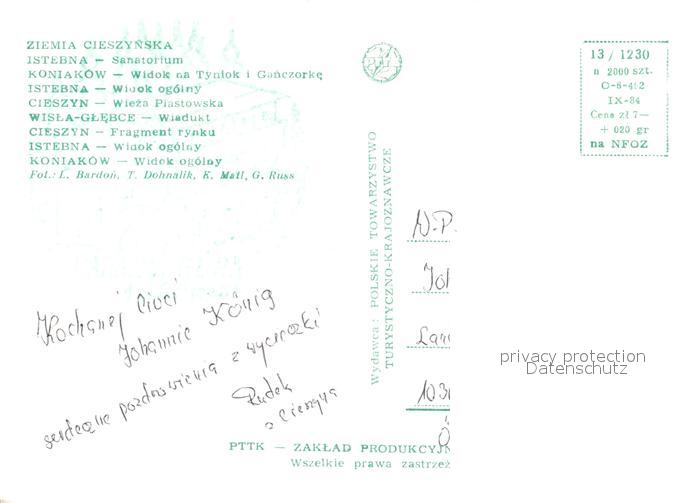 ZIEMIA CIESZYŃSKA
ISTEBNA — Sanatorium
KONIAKÓW — Widok na Tyniok i Gańczorkę
ISTEBNA — Widok ogólny
CIESZYN — Wieża Piastowska
WISŁA-GŁĘBCE — Wiadukt
CIESZYN — Fragment rynku
ISTEBNA — Widok ogólny
KONIAKÓW — Widok ogólny
Fot.: L. Bardoń, T. Dohnalik, K. Mall, G. Russ
Kochanej Cioci
Johannie König
serdeczne pozdrowienia z wycieczki
Rudek
z Cieszyna
Wydawca: POLSKIE TOWARZYSTWO
TURYSTYCZNO-KRAJOZNAWCZE
13 / 1230
n 2000 szt.
O-6-462
IX-84
Cena zł 7—
+ 020 gr
na NFOZ
W.P.
Joh
Lan
103
Ö
privacy protection
Datenschutz
PTTK — ZAKŁAD PRODUKCYJN
Wszelkie prawa zastrzeż